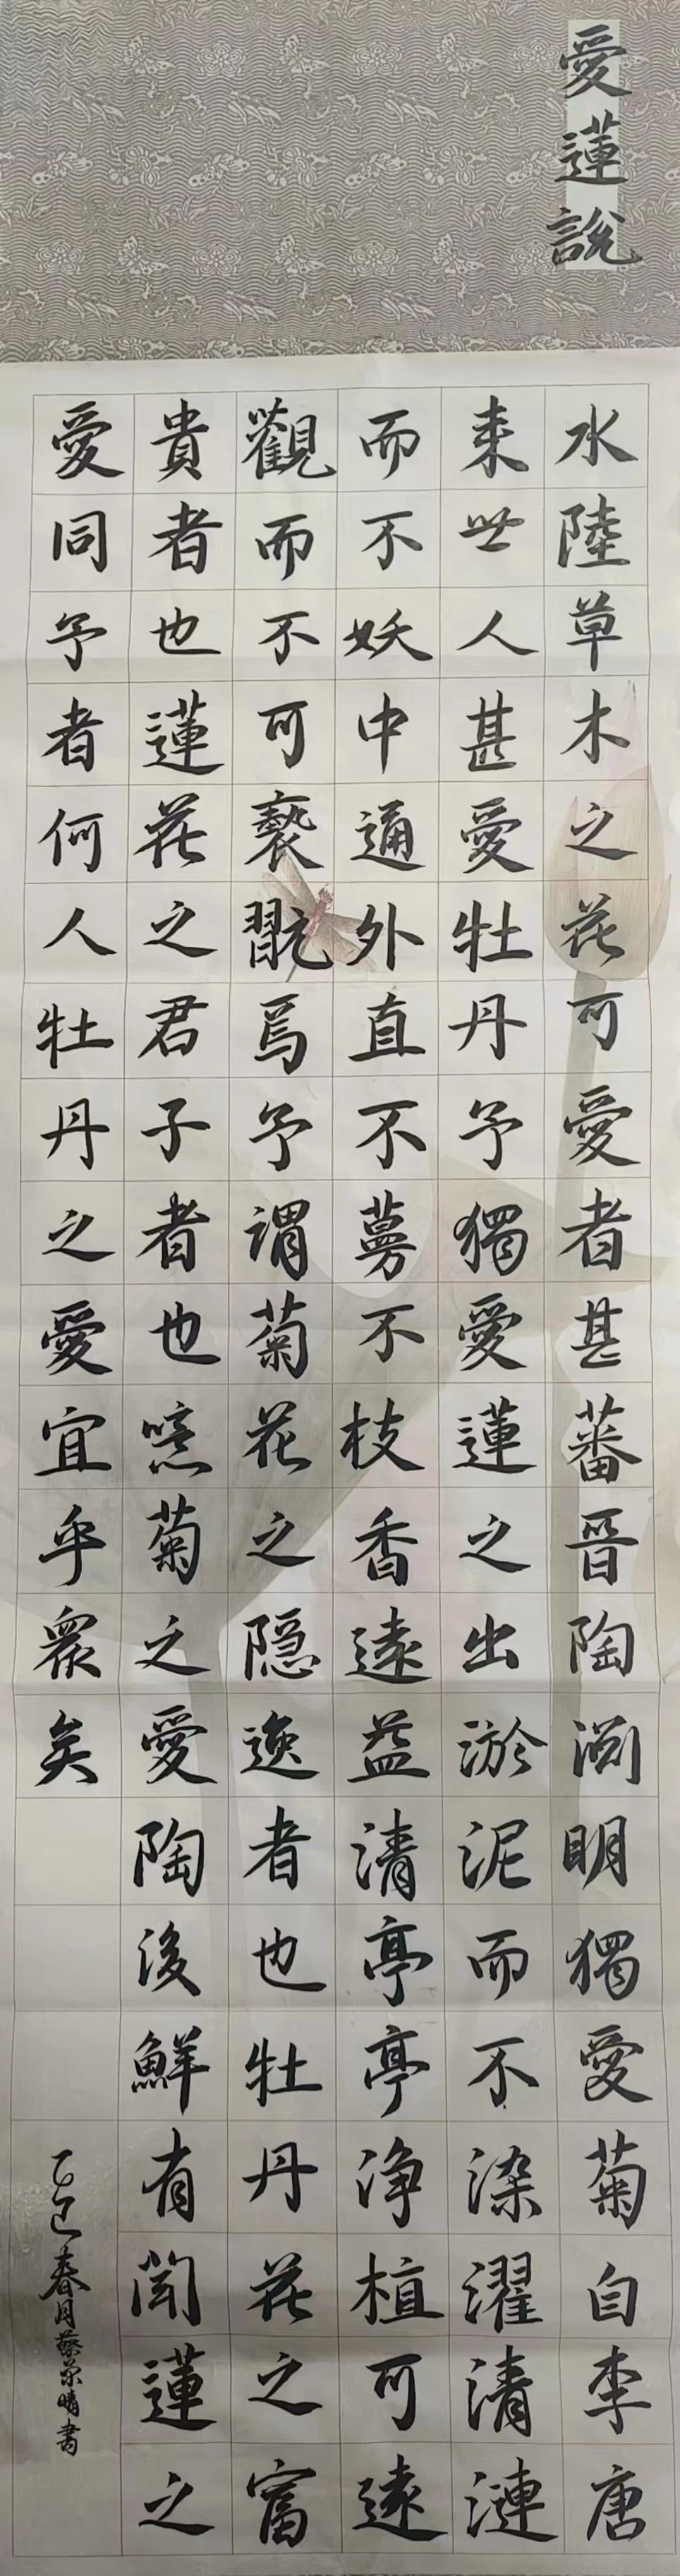 愛蓮說
水陸草木之花可愛者甚蕃晉陶渕明獨愛菊自李唐
来世人甚愛牡丹予獨愛蓮之出淤泥而不染濯清漣
而不妖中通外直不蔓不枝香遠益清亭亭净植可遠
觀而不可褻翫焉予謂菊花之隠逸者也牡丹花之富
貴者也蓮花之君子者也噫菊之愛陶後鮮有聞蓮之
愛同予者何人牡丹之愛宜乎衆矣
乙巳春月蔡荣晴書